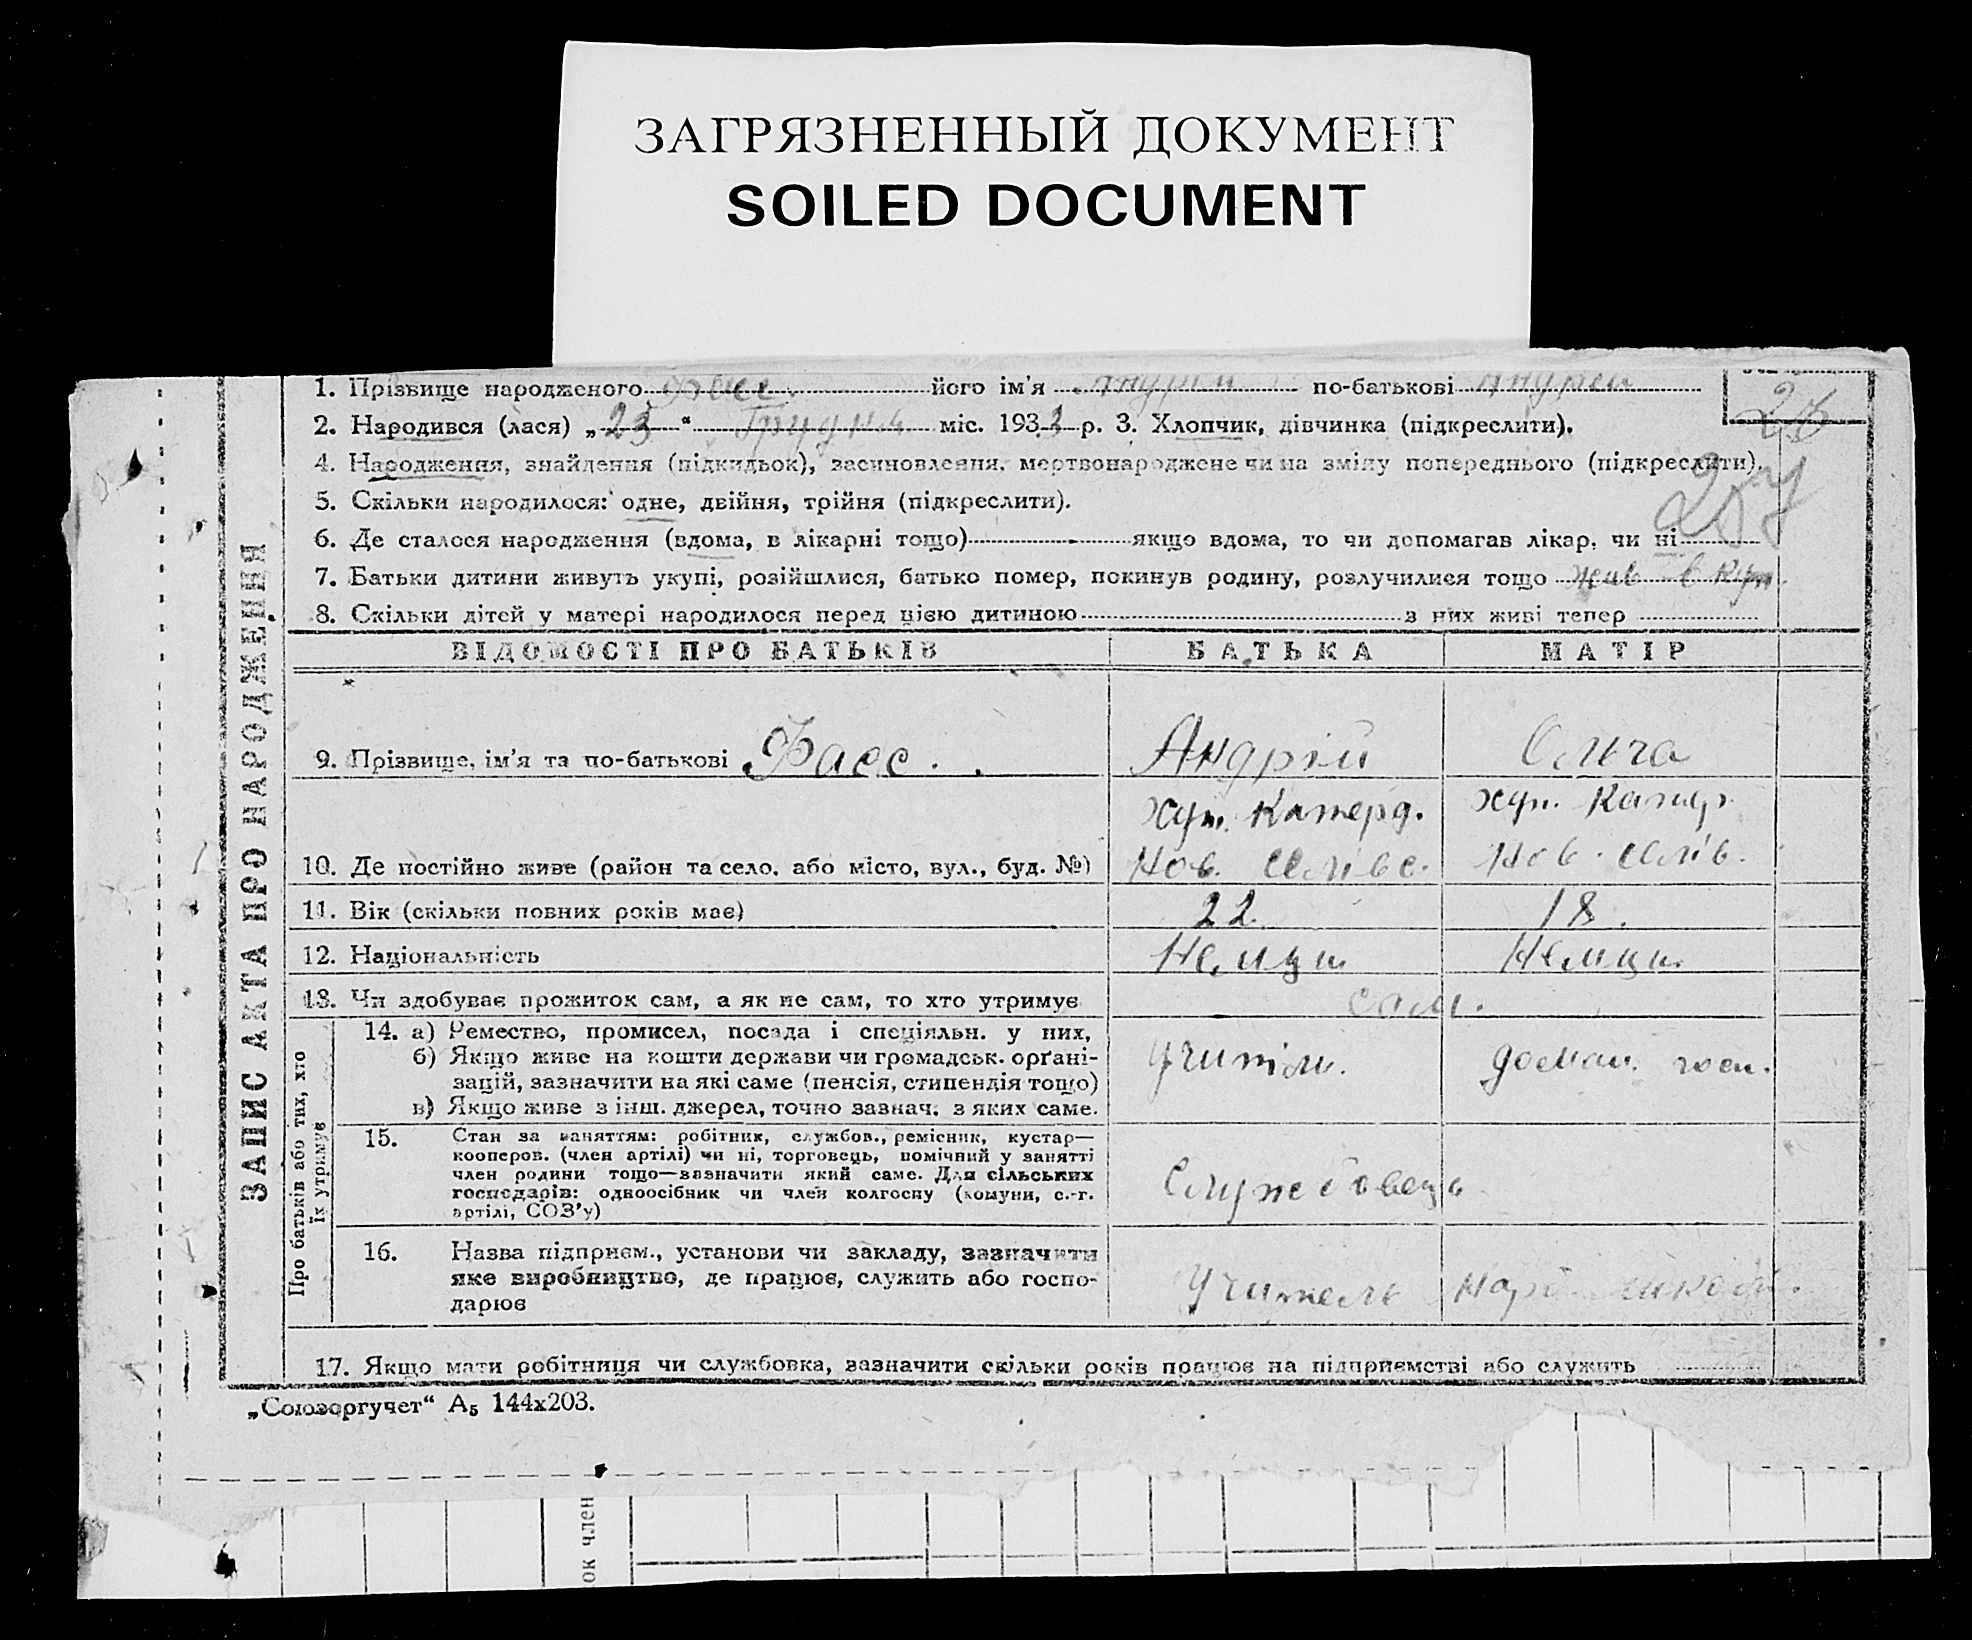 ЗАГРЯЗНЕННЫЙ ДОКУМЕНТ
SOILED DOCUMENT
1. Прізвище народженого Фаас його ім'я Андрій по-батькові Андрей
2. Народився (лася) „23“ Грудня міс. 1933 р. 3. Хлопчик, дівчинка (підкреслити).
4. Народження, знайдення (підкидьок), засиновлення, мертвонароджене чи на зміну попереднього (підкреслити).
5. Скільки народилося: одне, двійня, трійня (підкреслити).
6. Де сталося народження (вдома, в лікарні тощо) якщо вдома, то чи допомагав лікар, чи ні
7. Батьки дитини живуть укупі, розійшлися, батько помер, покинув родину, розлучилися тощо
8. Скільки дітей у матері народилося перед цією дитиною з них живі тепер
ЗАПИС АКТА ПРО НАРОДЖЕННЯ
ВІДОМОСТІ ПРО БАТЬКІВ БАТЬКА МАТІР
9. Прізвище, ім'я та по-батькові Фаас. Андрій Ольга
хут. Катерд. хут.
10. Де постійно живе (район та село, або місто, вул., буд. №) Нов.
11. Вік (скільки повних років має) 22. 18.
12. Національність Немци Немци
13. Чи здобуває прожиток сам, а як не сам, то хто утримує сам.
Про батьків або тих, хто
їх утримує
14. а) Ремество, промисел, посада і спеціяльн. у них,
б) Якщо живе на кошти держави чи громадськ. орґані-
зацій, зазначити на які саме (пенсія, стипендія тощо)
в) Якщо живе з інш. джерел, точно зазнач. з яких саме.
учитель. домаш. госп.
15. Стан за заняттям: робітник, службов., ремісник, кустар—
кооперов. (член артілі) чи ні, торговець, помічний у занятті
член родини тощо—зазначити який саме. Для сільських
господарів: одноосібник чи член колгоспу (комуни, с.-г.
артілі, СОЗ'у)
Службовець
16. Назва підприєм., установи чи закладу, зазначити
яке виробництво, де працює, служить або госпо-
дарює
Учитель
17. Якщо мати робітниця чи службовка, зазначити скільки років працює на підприємстві або служить
„Союзоргучет“ А5 144х203.
ок член